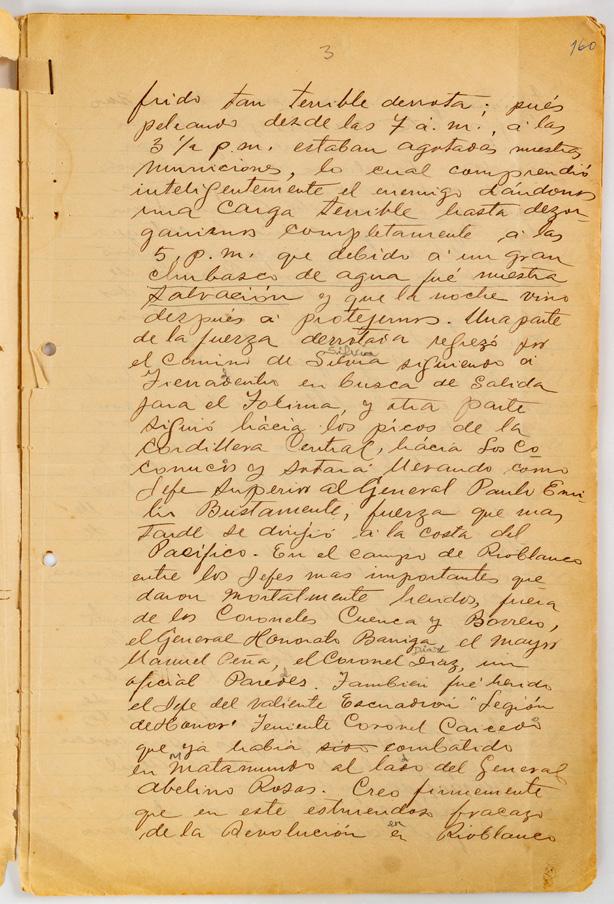 3
160
frido tan terrible derrota; pués
peleando desde las 7 á.m., á las
3 1/2 p.m. estaban agotadas nuestras
municiones, lo cual comprendió
inteligentemente el enemigo dándonos
una carga terrible hasta dezor-
ganizarnos completamente á las
5, p.m. que debido á un gran
chubasco de agua fué nuestra
salvación y que la noche vino
después á protejernos. Una parte
de la fuerza derrotada regresó por
el camino de Silvia siguiendo á
Silvia
Tierradentro en busca de salida
para el Tolima, y otra parte
siguió hácia los picos de la
Cordillera Central, hácia Los Co
conucos y Sotará llevando como
Jefe Superior al General Paulo Emi-
lio Bustamente, fuerza que mas
tarde se dirijió á la costa del
Pacífico. En el campo de Rioblanco
entre los Jefes mas importantes que
daron mortalmente heridos, fuera
de los Coroneles Cuenca y Borrero,
el General Honorato Barriga, el mayor
Manuel Peña, el Coronel Diaz, un
Diaz
oficial Paredes. Tambien fué herido
el Jefe del valiente Escuadron "Legión
de Honor" Teniente Coronel Caicedo
que ya habia sido combatido
en Matamundo al lado del General
Abelino Rosas. Creo firmemente
que en este estruendoso fracazo
de la Revolución en Rioblanco
en